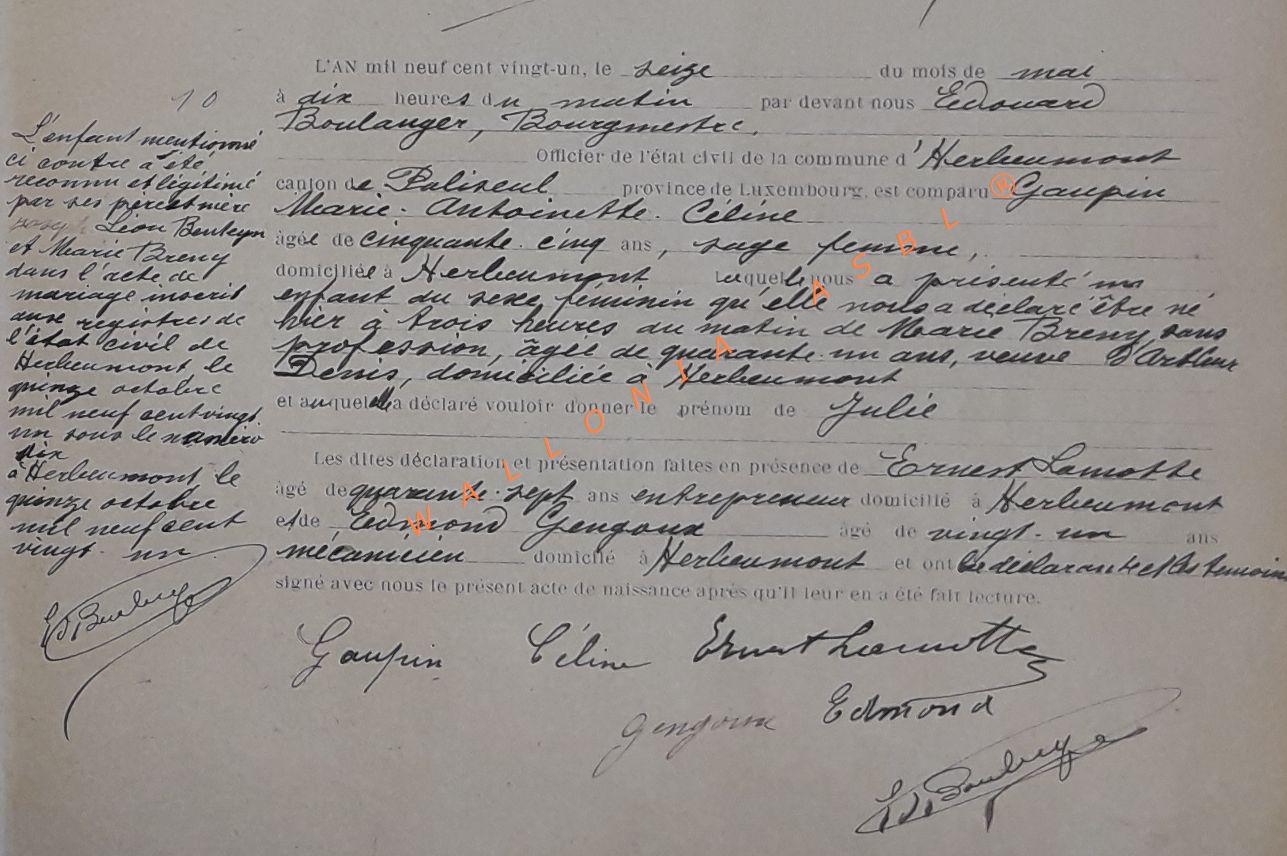 L'AN mil neuf cent vingt-un, le seize du mois de mai
à dix heures du matin par devant nous Edouard
Boulanger, Bourgmestre,
Officier de l'état civil de la commune d'Herbeumont
canton de Paliseul province de Luxembourg, est comparu Gaupin
Marie-Antoinette-Céline
âgée de cinquante-cinq ans, sage femme,
domiciliée à Herbeumont laquelle nous a présenté un
enfant du sexe féminin qu'elle nous a déclaré être né
hier à trois heures du matin de Marie Breny, sans
profession, âgée de quarante-un ans, veuve d'Arthur
Denis, domiciliée à Herbeumont
et auquel elle a déclaré vouloir donner le prénom de Julie
Les dites déclaration et présentation faites en présence de Ernest Lamotte
âgé de quarante-sept ans entrepreneur domicilié à Herbeumont
et de Edmond Gengoux âgé de vingt-un ans
mécanicien domicilié à Herbeumont et ont la déclarante et les témoins
signé avec nous le présent acte de naissance après qu'il leur en a été fait lecture.
Gaupin Céline Ernest Lamotte
Gengoux Edmond
Ed. Boulanger
10
L'enfant mentionné
ci contre a été
reconnu et légitimé
par ses père et mère
Léon
et Marie Breny
dans l'acte de
mariage inscrit
aux registres de
l'état civil de
Herbeumont, le
quinze octobre
mil neuf cent vingt
un sous le numéro
dix
à Herbeumont, le
quinze octobre
mil neuf cent
vingt-un
Ed. Boulanger
WALLONIA ASBL ®